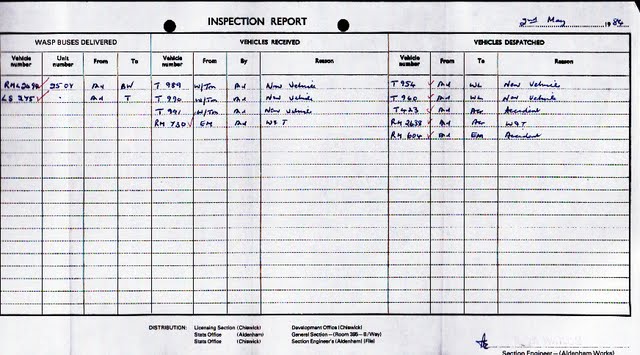 INSPECTION REPORT
2nd May 1984
WASP BUSES DELIVERED VEHICLES RECEIVED VEHICLES DESPATCHED
Vehicle number Unit number From To Vehicle number From By Reason Vehicle number From To Reason
RML2694 2504 Ad BW T 989 W/Ton Ad New Vehicle T 954 Ad WL New Vehicle
LS 245 Ad T T 990 W/Ton Ad New Vehicle T 960 Ad WL New Vehicle
T 991 W/Ton Ad New Vehicle T 423 Ad Accident
RM 730 EM Ad W&T RM 2638 Ad W&T
RM 604 Ad EM Accident
DISTRIBUTION: Licensing Section (Chiswick) Development Office (Chiswick)
Stats Office (Aldenham) General Section - (Room 395 - B/Way)
Stats Office (Chiswick) Section Engineer's (Aldenham) (File)
Section Engineer - (Aldenham Works)